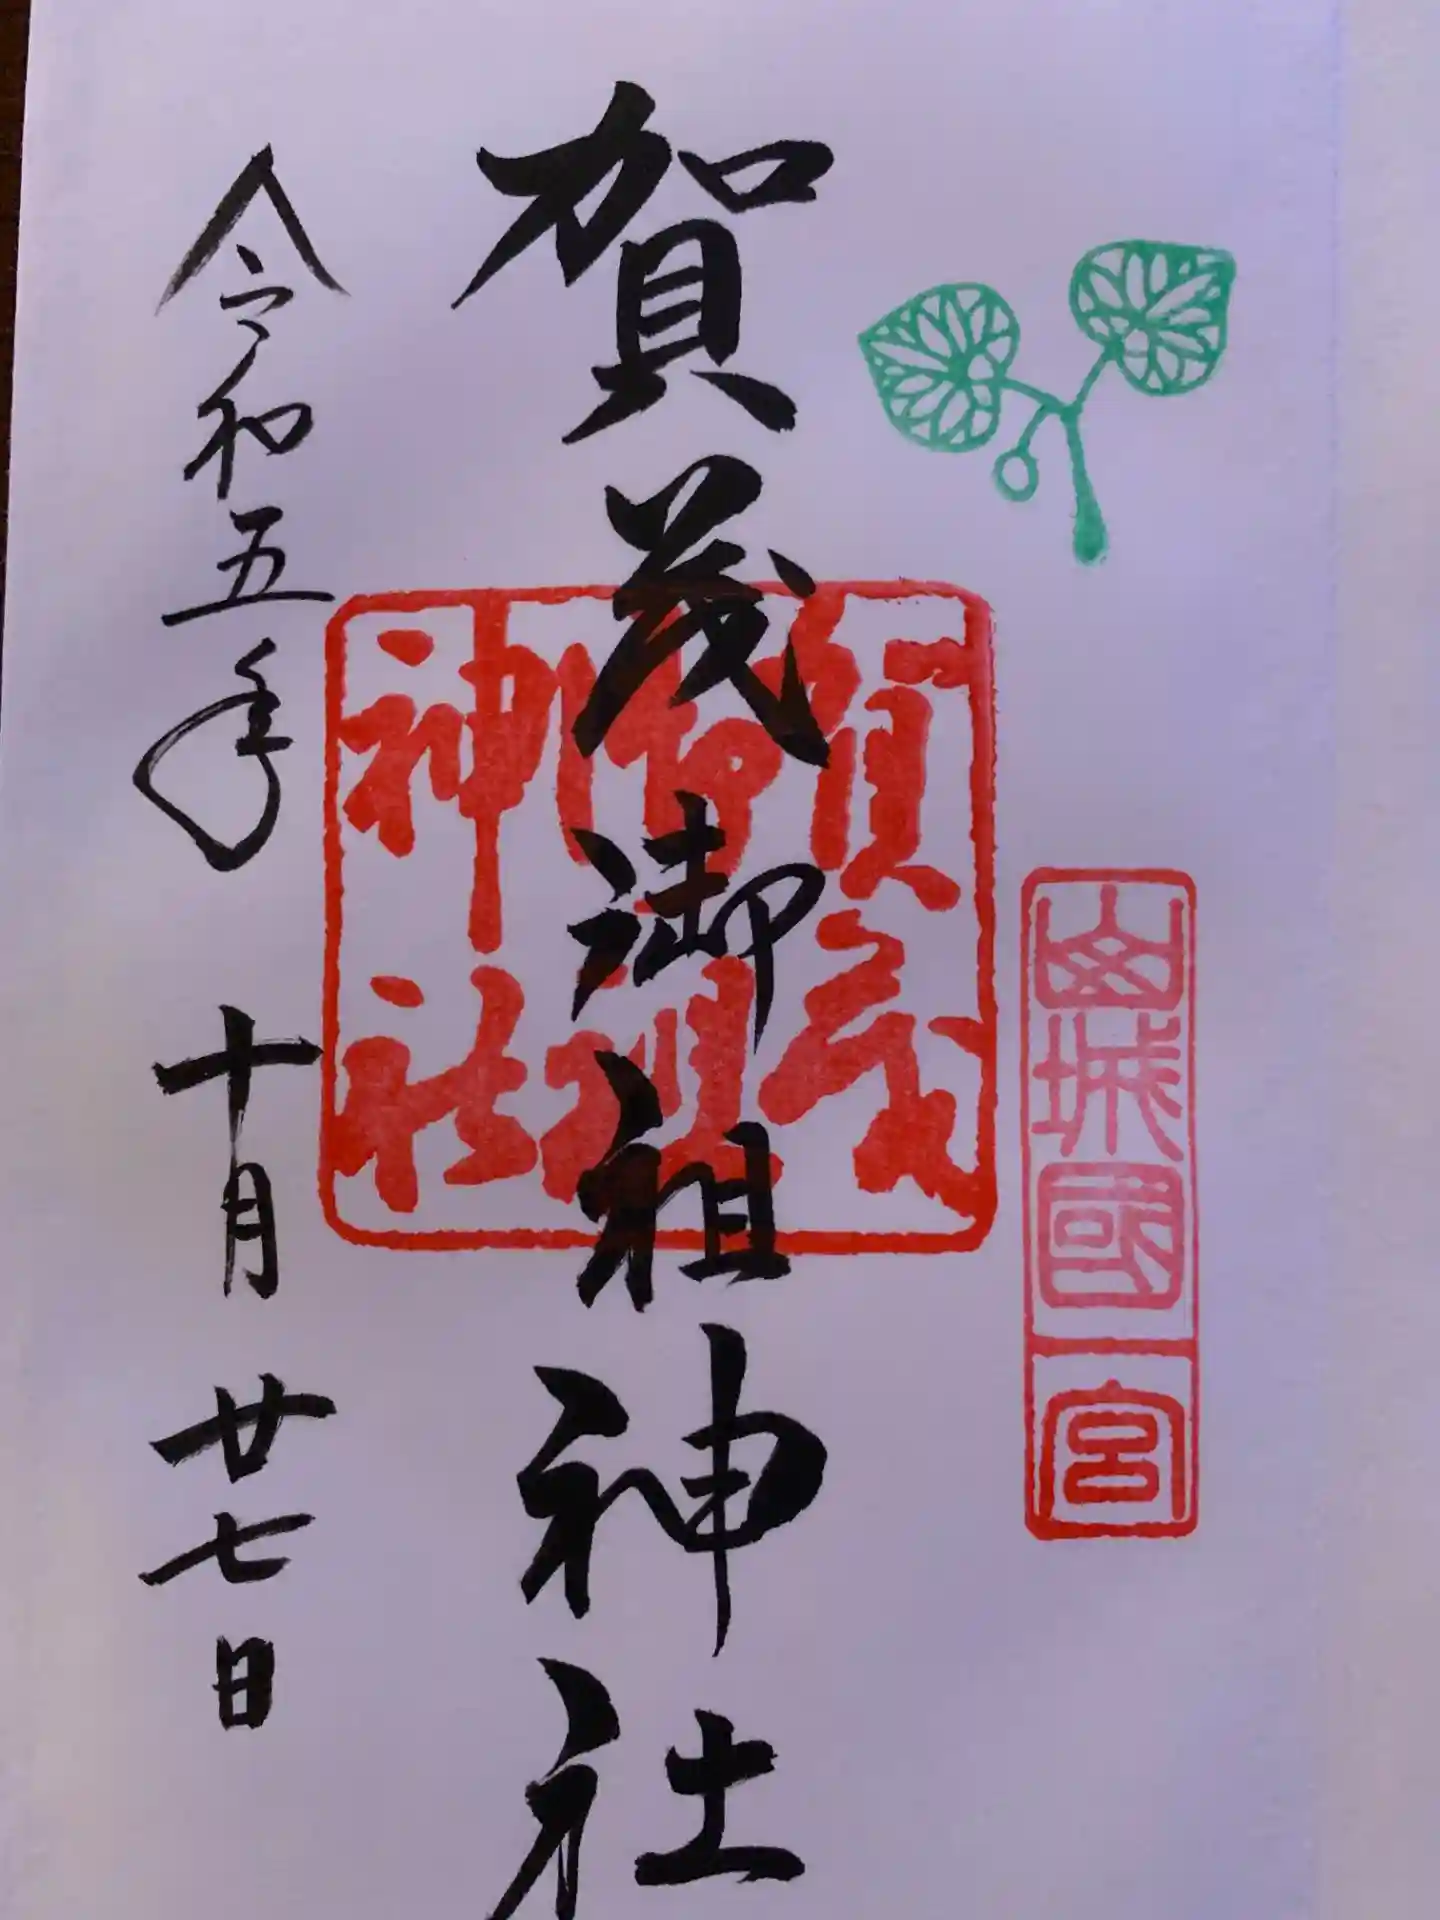 山城國一宮
賀茂御祖神社
賀茂
御祖
神社
令和五年十月廿七日